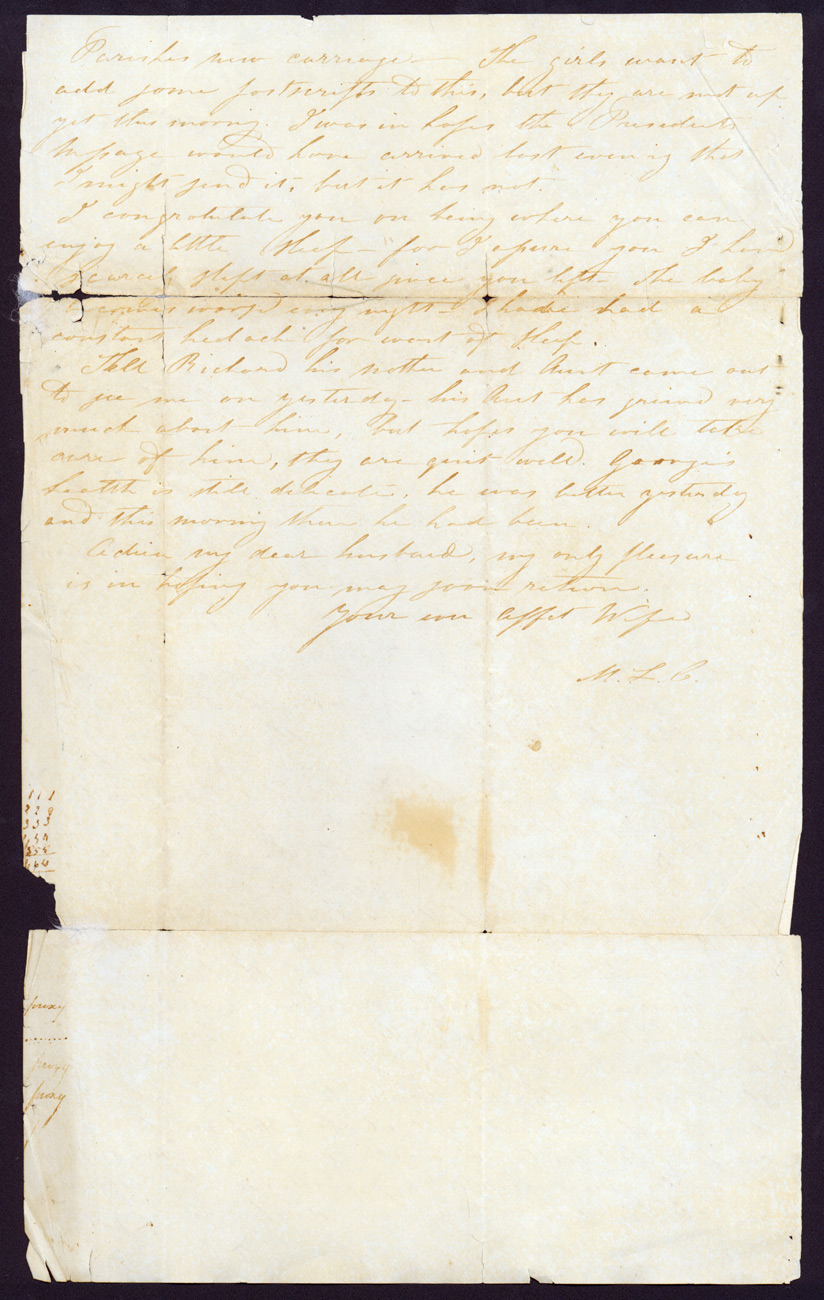 Parishes new carriage — The girls want to
add some postscripts to this, but they are not up
yet this morning. I was in hopes the Presidents
Message would have arrived last evening that
I might send it, but it has not.
I congratulate you on being where you can
enjoy a little sleep — for I assure you I have
scarcely slept at all since you left — the baby
worse evry night — I have had a
constant hedache for want of sleep.
Tell Richard his mother and Aunt came out
to see me on yesterday — his Aunt has grieved very
much about him, but hopes you will take
care of him, they are quit well. George's
health is still delicate, he was better yesterday
and this morning than he had been.
Adieu my dear husband, my only pleasure
is in hoping you may soon return.
Your own Affct Wife
M. L. C.
111
333
proxy
proxy
proxy